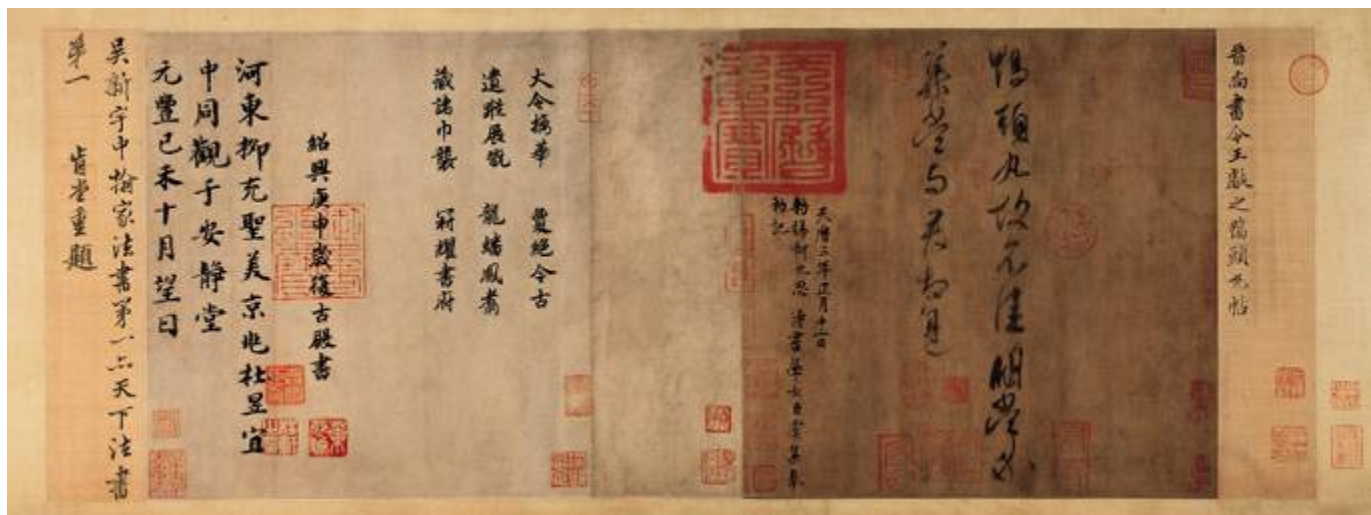 晉尚書令王獻之鴨頭丸帖
鴨頭丸故不佳明當必
集當與君相見
天曆之寶
天曆三年正月十二日
敕賜柯九思 侍書學士臣虞集奉
敕記
大令摛華 夐絕今古
遺蹤展翫 龍蟠鳳翥
藏諸巾襲 冠耀書府
紹興庚申歲復古殿書
河東柳充聖美京兆杜昱宜
中同觀于安靜堂
元豐己未十月望日
吳新宇中翰家法書第一亦天下法書
第一 肯堂重題